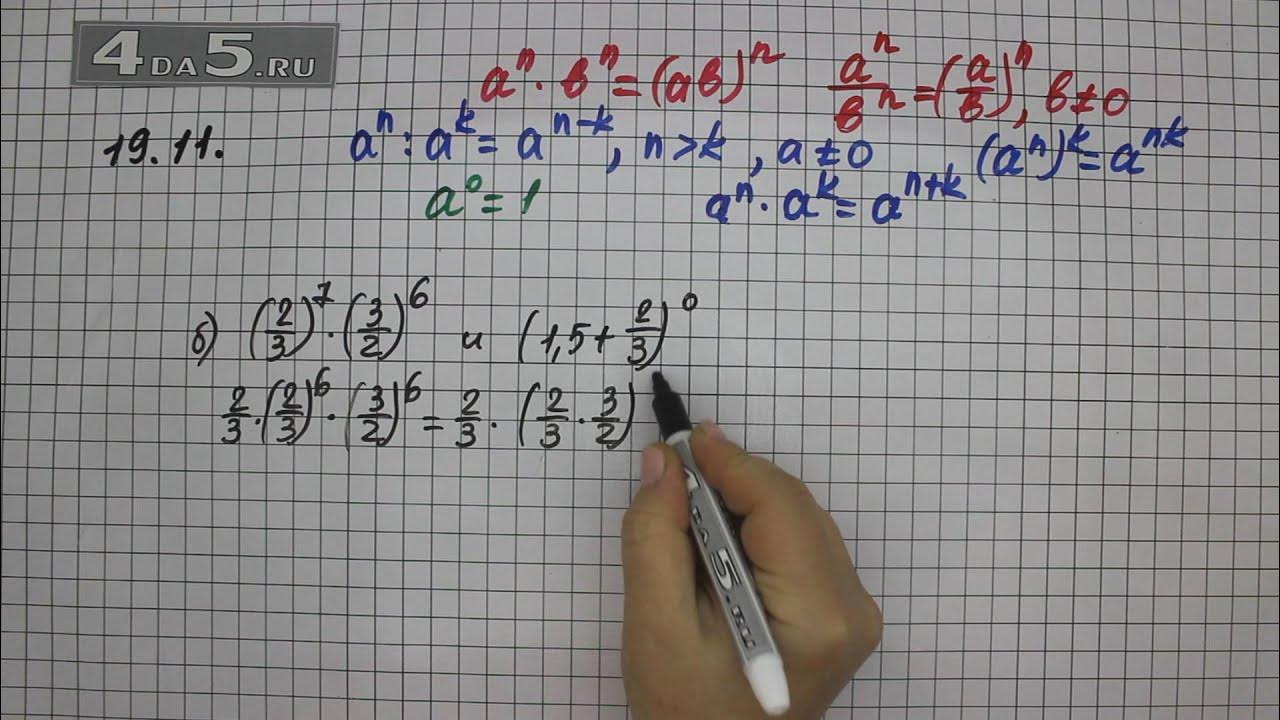 4DA5.RU
aⁿ · вⁿ = (ав)ⁿ   aⁿ/вⁿ = (а/в)ⁿ, в ≠ 0
19.11.   aⁿ : aᵏ = aⁿ⁻ᵏ, n > k, a ≠ 0   (aⁿ)ᵏ = aⁿᵏ
a⁰ = 1   aⁿ · aᵏ = aⁿ⁺ᵏ
б) (2/3)⁷ · (3/2)⁶ и (1,5 + 2/3)⁰
2/3 · (2/3)⁶ · (3/2)⁶ = 2/3 · (2/3 · 3/2)